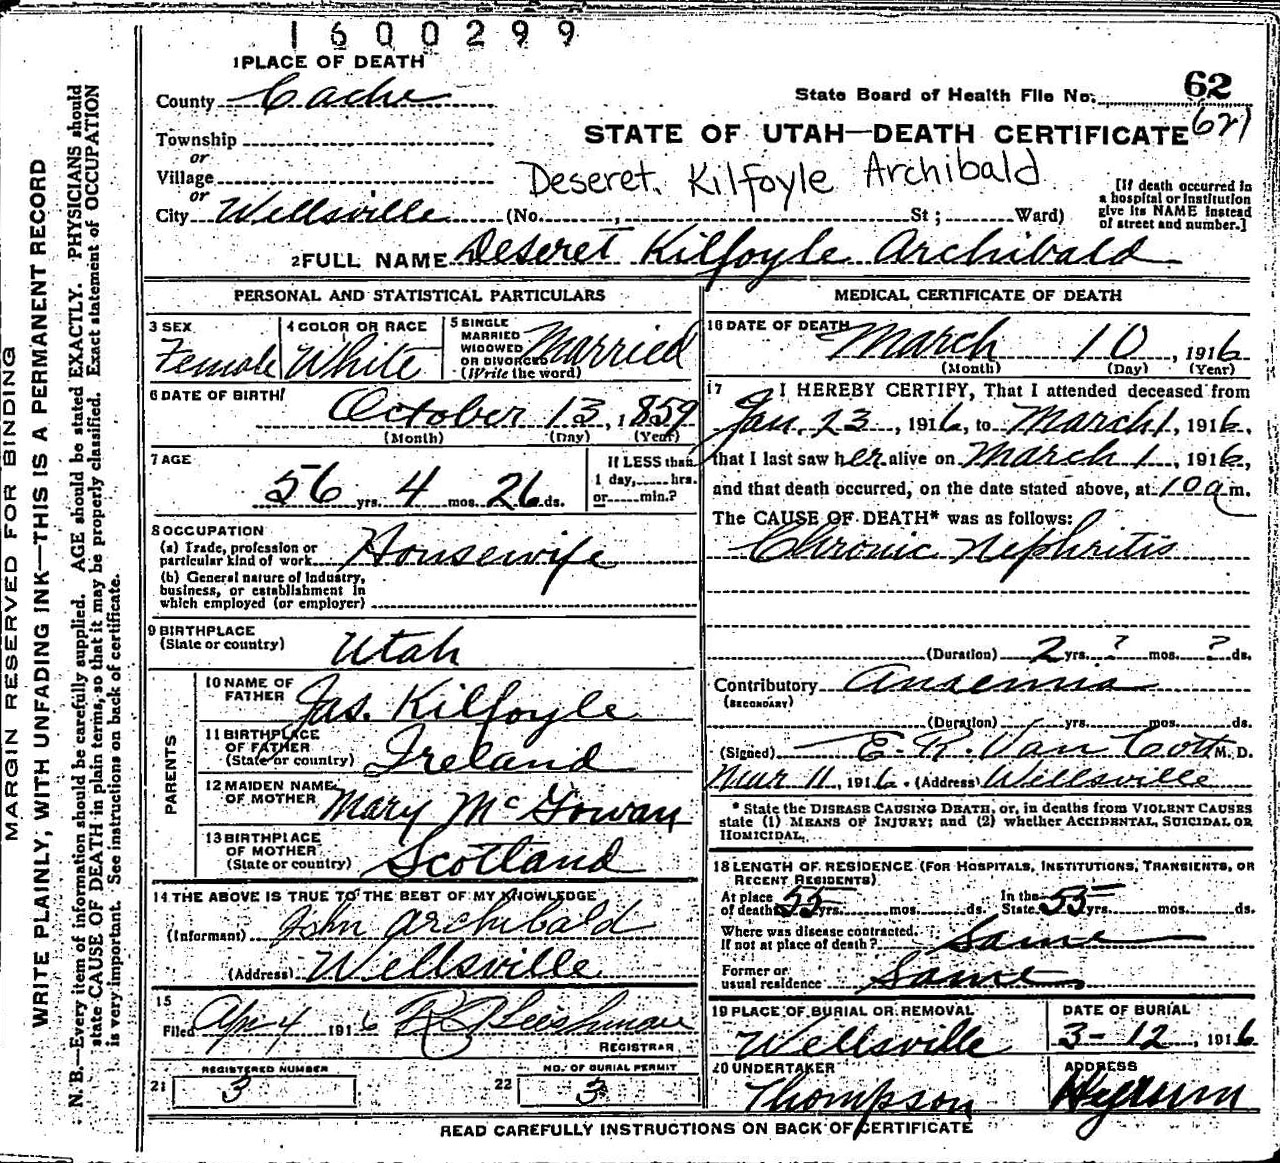 1600299
1 PLACE OF DEATH
County Cache
State Board of Health File No. 62
621
Township
or
STATE OF UTAH—DEATH CERTIFICATE
Village
or
Deseret Kilfoyle Archibald
[If death occurred in
a hospital or institution
give its NAME instead
of street and number.]
City Wellsville (No. , St ; Ward)
2 FULL NAME Deseret Kilfoyle Archibald
PERSONAL AND STATISTICAL PARTICULARS
3 SEX
Female
4 COLOR OR RACE
White
5 SINGLE
MARRIED
WIDOWED
OR DIVORCED
(Write the word)
Married
6 DATE OF BIRTH
October 13, 1859
(Month) (Day) (Year)
7 AGE
56 yrs. 4 mos. 26 ds.
If LESS than
1 day, hrs.
or min.?
8 OCCUPATION
(a) Trade, profession or
particular kind of work Housewife
(b) General nature of industry,
business, or establishment in
which employed (or employer)
9 BIRTHPLACE
(State or country) Utah
PARENTS
10 NAME OF
FATHER Jas. Kilfoyle
11 BIRTHPLACE
OF FATHER
(State or country) Ireland
12 MAIDEN NAME
OF MOTHER Mary McGowan
13 BIRTHPLACE
OF MOTHER
(State or country) Scotland
14 THE ABOVE IS TRUE TO THE BEST OF MY KNOWLEDGE
(Informant) John Archibald
(Address) Wellsville
15
Filed Apr 4 1916 Leishman
REGISTRAR
REGISTERED NUMBER
21 3
NO. OF BURIAL PERMIT
22 3
MEDICAL CERTIFICATE OF DEATH
16 DATE OF DEATH
March 10, 1916
(Month) (Day) (Year)
17 I HEREBY CERTIFY, That I attended deceased from
Jan. 23, 1916, to March 1, 1916,
that I last saw her alive on March 1, 1916,
and that death occurred, on the date stated above, at 10 a m.
The CAUSE OF DEATH* was as follows:
Chronic Nephritis
(Duration) 2 yrs. ? mos. ? ds.
Contributory Anaemia
(SECONDARY)
(Duration) yrs. mos. ds.
(Signed) E. R. Van Cott M. D.
Mar 11, 1916. (Address) Wellsville
* State the DISEASE CAUSING DEATH, or, in deaths from VIOLENT CAUSES
state (1) MEANS OF INJURY; and (2) whether ACCIDENTAL, SUICIDAL OR
HOMICIDAL.
18 LENGTH OF RESIDENCE (FOR HOSPITALS, INSTITUTIONS, TRANSIENTS, OR
RECENT RESIDENTS)
At place
of death 55 yrs. mos. ds.
In the
State 55 yrs. mos. ds.
Where was disease contracted,
If not at place of death? Same
Former or
usual residence Same
19 PLACE OF BURIAL OR REMOVAL
Wellsville
DATE OF BURIAL
3-12, 1916
20 UNDERTAKER
Thompson
ADDRESS
Hyrum
READ CAREFULLY INSTRUCTIONS ON BACK OF CERTIFICATE
MARGIN RESERVED FOR BINDING
WRITE PLAINLY, WITH UNFADING INK—THIS IS A PERMANENT RECORD
N. B.—Every item of information should be carefully supplied. AGE should be stated EXACTLY. PHYSICIANS should
state CAUSE OF DEATH in plain terms, so that it may be properly classified. Exact statement of OCCUPATION
is very important. See instructions on back of certificate.